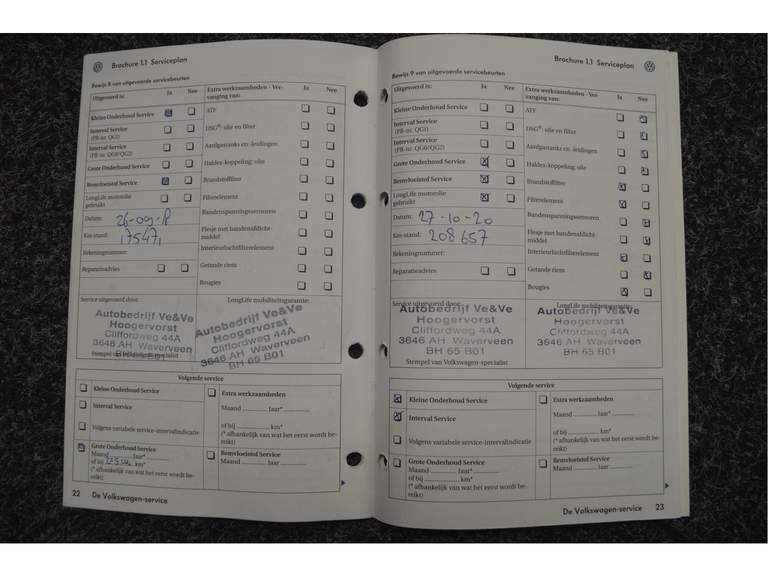 Brochure 1.1 Serviceplan
Bewijs 8 van uitgevoerde servicebeurten
Uitgevoerd is: Ja Nee
Extra werkzaamheden - Ver-
vanging van: Ja Nee
Kleine Onderhoud Service
Interval Service
(PR-nr. QG1)
Interval Service
(PR-nr. QG0/QG2)
Grote Onderhoud Service
Remvloeistof Service
LongLife motorolie
gebruikt
Datum:
Km-stand: 175471
Rekeningnummer:
Reparatieadvies
ATF
DSG®: olie en filter
Aardgastanks en -leidingen
Haldex-koppeling: olie
Brandstoffilter
Filterelement
Bandenspanningssensoren
Flesje met bandenafdicht-
middel
Interieurluchtfilterelement
Getande riem
Bougies
Service uitgevoerd door:
LongLife mobiliteitsgarantie:
Autobedrijf Ve&Ve
Hoogervorst
Cliffordweg 44A
3646 AH Waverveen
Autobedrijf Ve&Ve
Hoogervorst
Cliffordweg 44A
3646 AH Waverveen
BH 65 B01
Stempel van Volkswagen-specialist
Volgende service
Kleine Onderhoud Service
Interval Service
Volgens variabele service-intervalindicatie
Grote Onderhoud Service
Maand ............ Jaar*
of bij km*
(* afhankelijk van wat het eerst wordt be-
reikt)
Extra werkzaamheden
Maand ............ Jaar* ............
of bij ............ km*
(* afhankelijk van wat het eerst wordt be-
reikt)
Remvloeistof Service
Maand ............ Jaar
22 De Volkswagen-service
Brochure 1.1 Serviceplan
Bewijs 9 van uitgevoerde servicebeurten
Uitgevoerd is: Ja Nee
Extra werkzaamheden - Ver-
vanging van: Ja Nee
Kleine Onderhoud Service
Interval Service
(PR-nr. QG1)
Interval Service
(PR-nr. QG0/QG2)
Grote Onderhoud Service
Remvloeistof Service
LongLife motorolie
gebruikt
Datum: 27-10-20
Km-stand: 208657
Rekeningnummer:
Reparatieadvies
ATF
DSG®: olie en filter
Aardgastanks en -leidingen
Haldex-koppeling: olie
Brandstoffilter
Filterelement
Bandenspanningssensoren
Flesje met bandenafdicht-
middel
Interieurluchtfilterelement
Getande riem
Bougies
Service uitgevoerd door:
LongLife mobiliteitsgarantie:
Autobedrijf Ve&Ve
Hoogervorst
Cliffordweg 44A
3646 AH Waverveen
BH 65 B01
Autobedrijf Ve&Ve
Hoogervorst
Cliffordweg 44A
3646 AH Waverveen
BH 65 B01
Stempel van Volkswagen-specialist
Volgende service
Kleine Onderhoud Service
Interval Service
Volgens variabele service-intervalindicatie
Grote Onderhoud Service
Maand ............ Jaar* ............
of bij ............ km*
(* afhankelijk van wat het eerst wordt be-
reikt)
Extra werkzaamheden
Maand ............ Jaar* ............
of bij ............ km*
(* afhankelijk van wat het eerst wordt be-
reikt)
Remvloeistof Service
Maand ............ Jaar ............
De Volkswagen-service 23